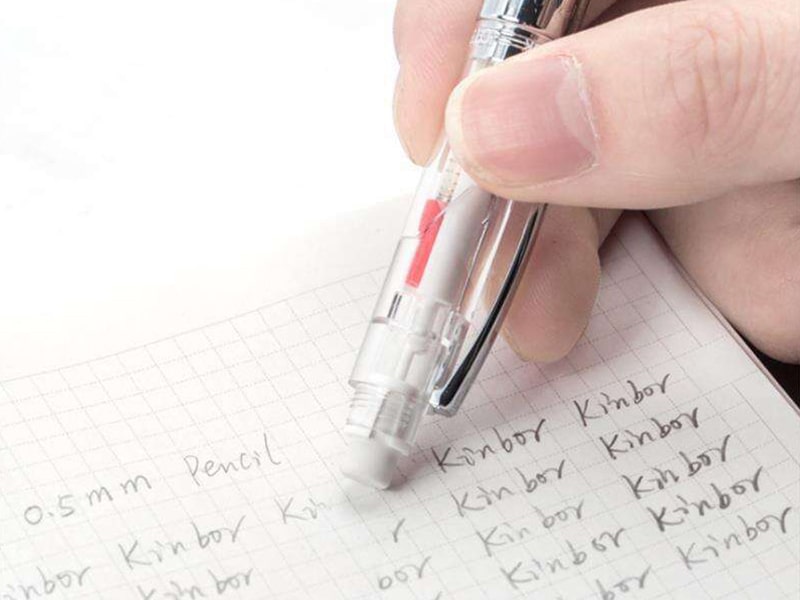 0.5mm Pencil Kinbor Kinbor
inbor Kinbor Kin Kinbor Kinbor
Kinbor r Kinbor Kinbor
bor Kinbor Kinbor
bor Kinbor